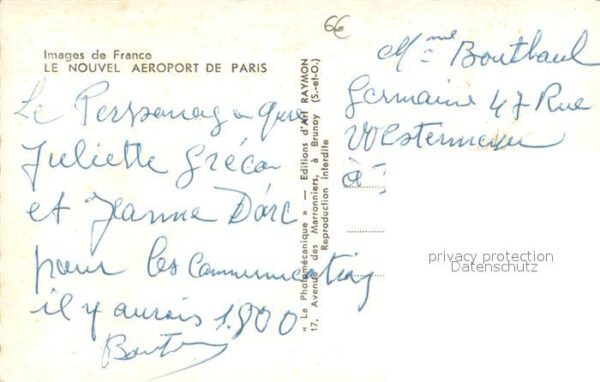 6€
Images de France
LE NOUVEL AEROPORT DE PARIS
Le Personnag que
Juliette Gréco
et Jeanne D'arc
pour les Communications
il y aurais 1.800
« La Photomécanique » — Editions d'Art RAYMON
17, Avenue des Marronniers, à Brunoy (S.-et-O.)
Reproduction interdite
Mme Bouthaul
Germaine 47 Rue
à
privacy protection
Datenschutz